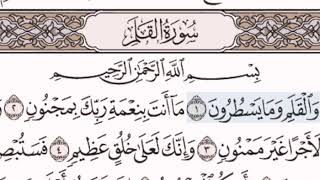 سُورَةُ القَلَمِ
بِسْمِ ٱللَّهِ ٱلرَّحْمَٰنِ ٱلرَّحِيمِ
وَٱلْقَلَمِ وَمَا يَسْطُرُونَ ١ مَآ أَنتَ بِنِعْمَةِ رَبِّكَ بِمَجْنُونٍ ٢
لَأَجْرًا غَيْرَ مَمْنُونٍ ٣ وَإِنَّكَ لَعَلَىٰ خُلُقٍ عَظِيمٍ ٤ فَسَتُبْصِ